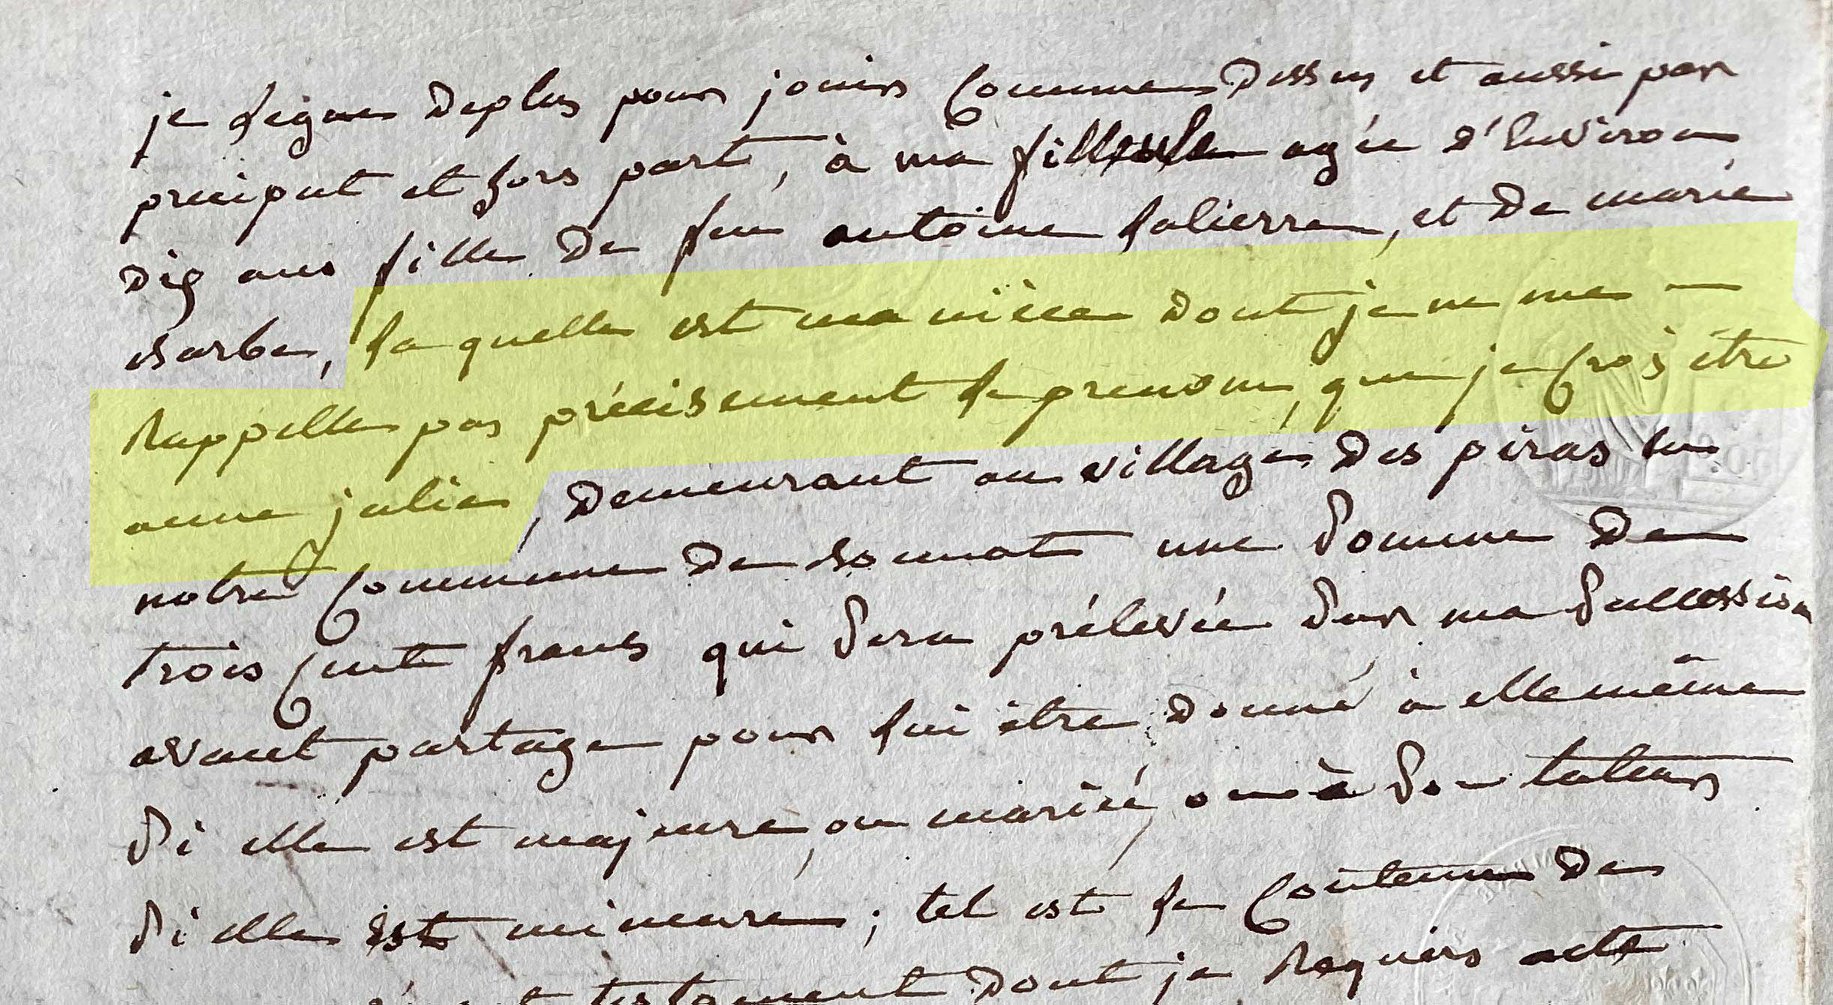 je legue deplus pour jouir comme dessus et aussi par
preciput et hors part, à ma filleule agée d'environ
dix ans fille de feu antoine salierre, et de marie
barbe, la quelle est ma nièce dont je ne me -
Rappelle pas précisement le prenom, que je crois être
anne julie, demeurant au village des piras en
notre commune de sonnat une somme de
trois cents francs qui sera prélevée sur ma succession
avant partage pour lui être donné à elle même
si elle est majeure, ou marié, ou à son tuteur
si elle est mineure; tel est le contenu de
testament dont je Requiers acte